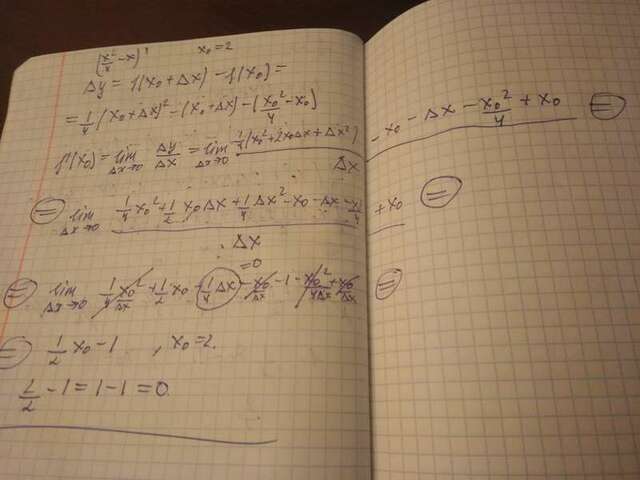 (x²/4 - x)' x₀ = 2
Δy = f(x₀ + Δx) - f(x₀) =
= 1/4 (x₀ + Δx)² - (x₀ + Δx) - (x₀²/4 - x₀)
f'(x₀) = lim Δx→0 Δy/Δx = lim Δx→0 (1/4 (x₀² + 2x₀Δx + Δx²) - x₀ - Δx - x₀²/4 + x₀)/Δx =
= lim Δx→0 (1/4 x₀² + 1/2 x₀Δx + 1/4 Δx² - x₀ - Δx - x₀²/4 + x₀)/Δx =
= 0
= lim Δx→0 1/4 x₀²/Δx + 1/2 x₀ + 1/4 Δx - x₀/Δx - 1 - x₀²/4Δx + x₀/Δx =
= 1/2 x₀ - 1 , x₀ = 2.
2/2 - 1 = 1 - 1 = 0.